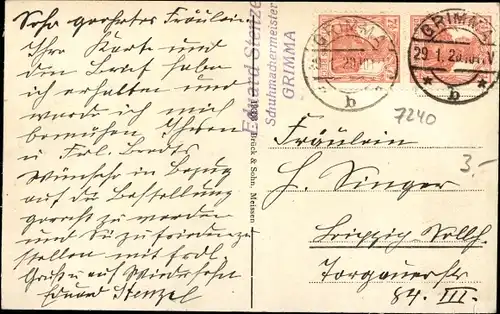 Sehr geehrtes Fräulein
Ihre Karte und
den Brief habe
ich erhalten und
werde ich mich
bemühen Ihren
u. Frl. Bredts
Wünsche in Bezug
auf die Bestellung
gerecht zu werden
und Sie zufrieden zu
stellen mit frdl.
Gruß u. auf Wiedersehn
Eduard Stenzel
Eduard Stenzel
Schuhmachermeister
GRIMMA
Brück & Sohn, Meissen
GRIMMA
b
GRIMMA
29 1. 20
b
7240
3-
Fräulein
H. Singer
Leipzig Vollh.
Torgauerstr
84. III.